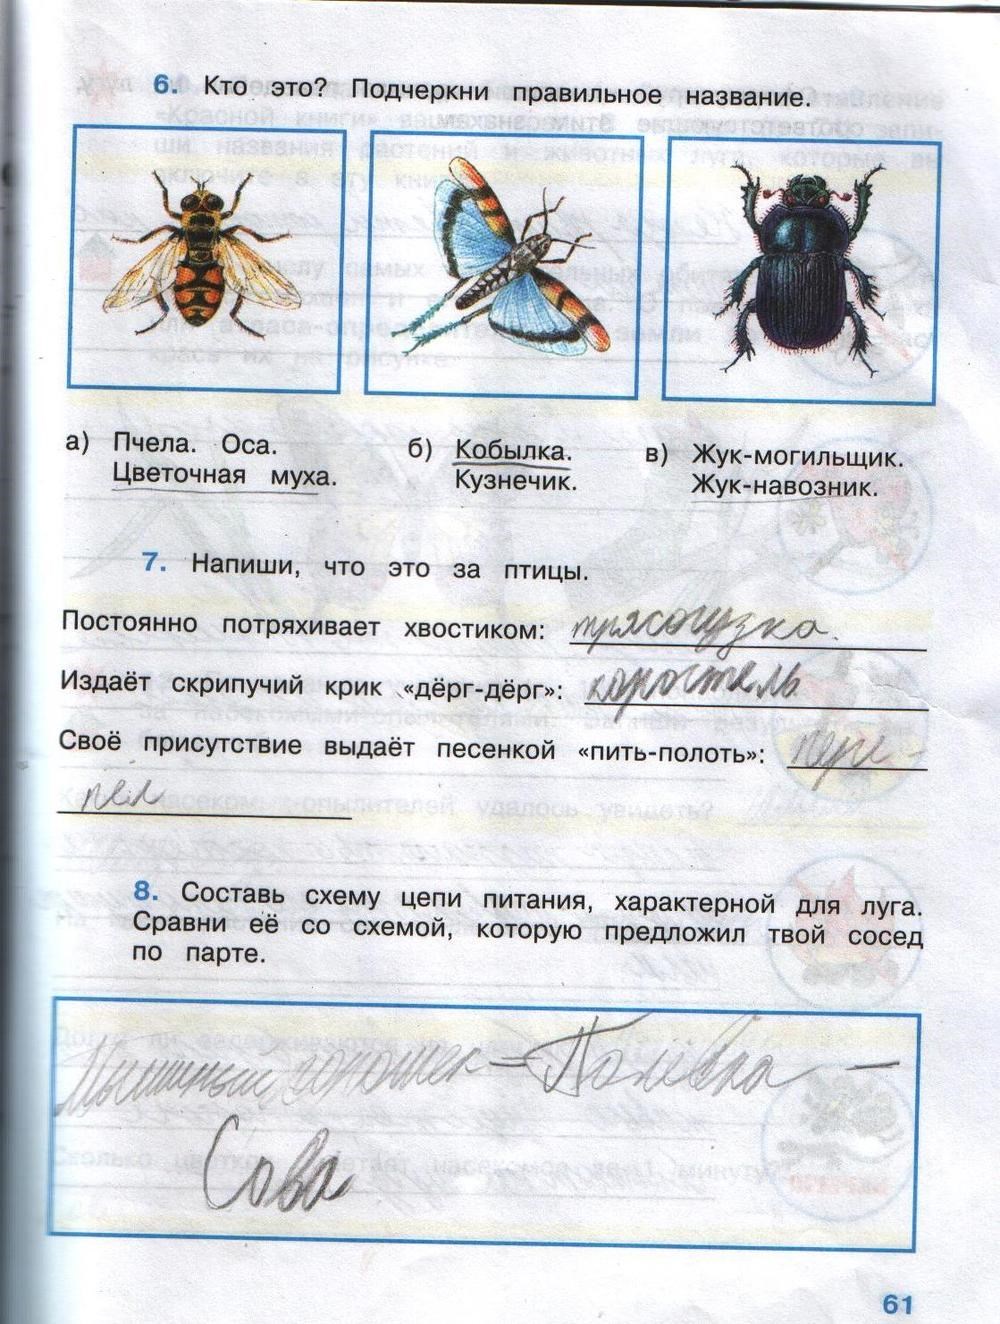 6. Кто это? Подчеркни правильное название.
а) Пчела. Оса.
Цветочная муха.
б) Кобылка.
Кузнечик.
в) Жук-могильщик.
Жук-навозник.
7. Напиши, что это за птицы.
Постоянно потряхивает хвостиком: трясогузка.
Издаёт скрипучий крик «дёрг-дёрг»: коростель
Своё присутствие выдаёт песенкой «пить-полоть»: пере-
пел
8. Составь схему цепи питания, характерной для луга.
Сравни её со схемой, которую предложил твой сосед
по парте.
Мышиный горошек – Полёвка –
Сова
61